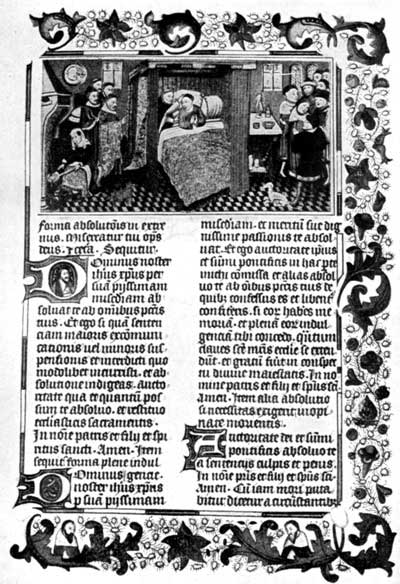 forma absolutōis in extre
mis. Misereatur tui op̄s
deus. ⁊ cetā. Sequitur.
Dominus noster
ihūs xp̄us per
suā pijssimam
misediam ab
soluat te ab omnibus pctis
tuis. Et ego si quā senten
ciam maioris excōmuni
cationis uel minoris sus
pensionis et interdicti quo
modolibet incurristi. et ab
solutione indigeas. aucto
ritate qua et quantū pos
sum te absoluo. et restituo
sacramentis.
In nōie patris et filij et spi
ritus sancti. Amen. Item
sequit̄ forma plene indul
Dominus gencie.
noster ihūs xp̄us
p suā pijssimam
misediam. et meritū sue dig
nissime passionis te absol
uat. Et ego auctoritate ipsius
et sūmi pontificis in hac pte
michi cōmissa et alias absol
uo te ab oībus pctis tuis de
quibꝫ confessus es et libent̄
confiteris. si eoꝝ habes me
moriā. et plenā eoꝝ indul
genciā tibi concedo.
claues scē mris ecclie se exten
dūt. et fiat in conspe
ctu diuine maiestatis. In no
mine patris et filij et sp̄us scī
Amen. Item alia absolutio
si necessitas exigerit in opi
nate morientis.
Auctoritate dei et sūmi
pontificis absoluo te
a sentencijs culpis et penis.
In nōie pris et filij et sp̄us scī
Amen. Cū iam mori puta
bitur dicetur a circumstantibꝫ